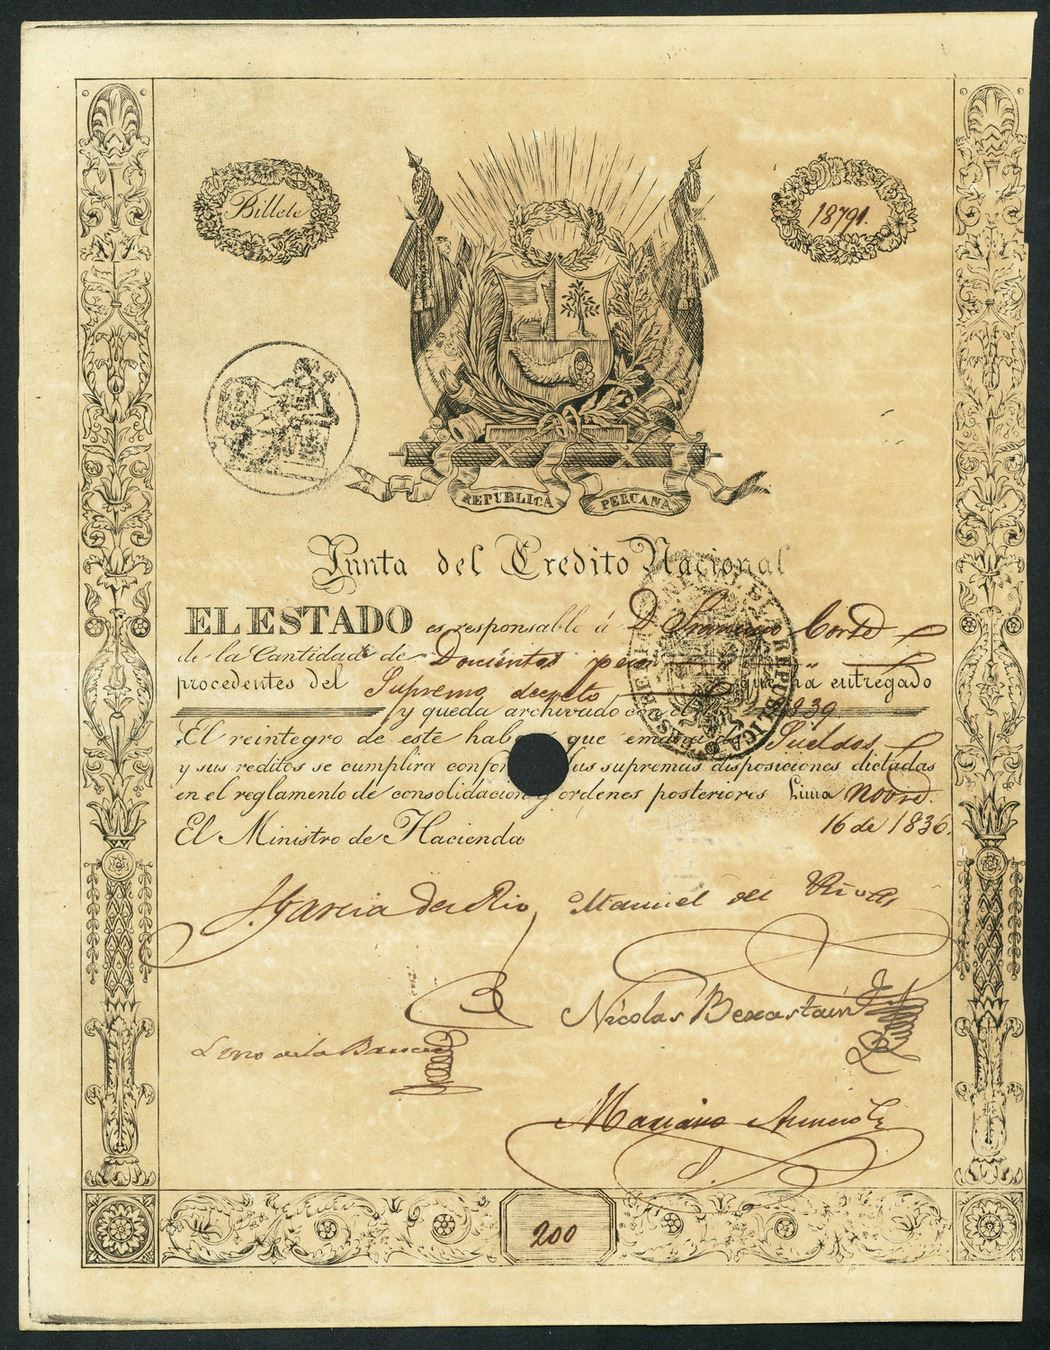 Billete
18791.
REPUBLICA PERUANA
Junta del Credito Nacional
EL ESTADO es responsable á D. Francisco
de la Cantidad de Docientos pesos
procedentes del Supremo decreto que ha entregado
y queda archivado con el 239
El reintegro de este haber que emana de Sueldos
y sus reditos se cumplira las supremas disposiciones dictadas
en el reglamento de consolidacion y ordenes posteriores Lima Novre.
16 de 1836.
El Ministro de Hacienda
J. Garcia del Rio
Manuel del
Nicolas
Lino de la
Mariano
200
REPUBLICA